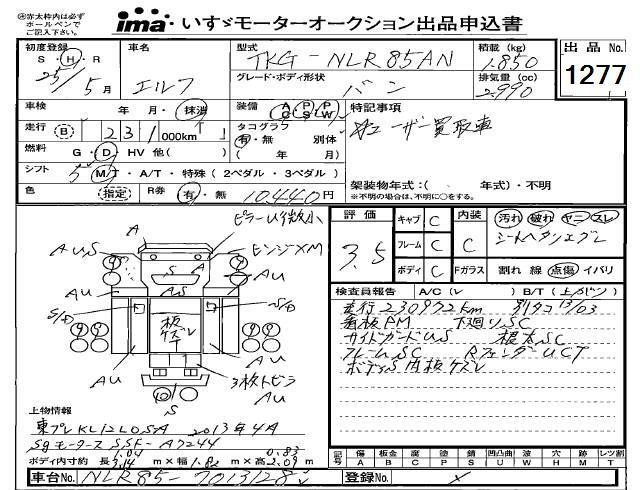 ㊟赤太枠内は必ず
ボールペンで
ご記入下さい。
ima いすゞモーターオークション出品申込書
初度登録 車名 型式 積載(kg) 出品No.
S・H・R エルフ TKG-NLR85AN 1.850
25年 5月 グレード・ボディ形状 バン 排気量(cc) 2.990 1277
車検 年・月・抹消 装備 AC PS PW 特記事項
走行 (B) 231,000km タコグラフ 有・無 別体 ユーザー買取車
燃料 G・D・HV 他( ) ( 年 月)
シフト 5 MT・A/T・特殊(2ペダル・3ペダル)
架装物年式:( 年式)・不明
色 指定 R券 有・無 10440円
※不明の場合は、不明に○をする。
ピラーU微小
A U,S A エンジ×M
AU S AU
S/D 板ケズレ S/D
AU AU
3枚トビラ
S
評価 3.5 キャブ C 内装 C 汚れ 破れ ヤニ スレ
フレーム C シートヘタリ
ボディ C Fガラス 割れ 線 点傷 イバリ
検査員報告 A/C(レ) B/T(上がバン)
走行230972km 別タコ13/03
看板PM 下廻りSC
サイドガードUS 根太SC
フレームSC RフェンダーUCT
ボディS 内板ケズレ
上物情報
東プレKL12LOSA 2013年4月
Sgモータース SSF-A7244
ボディ内寸約 長 3.14 m×幅 1.82 m×高 2.09 m
1.04 0.83
記号 傷 A 板金 B 腐 C 塗 P 錆 S 凹凸曲 U 波 W 穴 H 跡 M レツ割 T
車台No. NLR85-7013128 登録No.